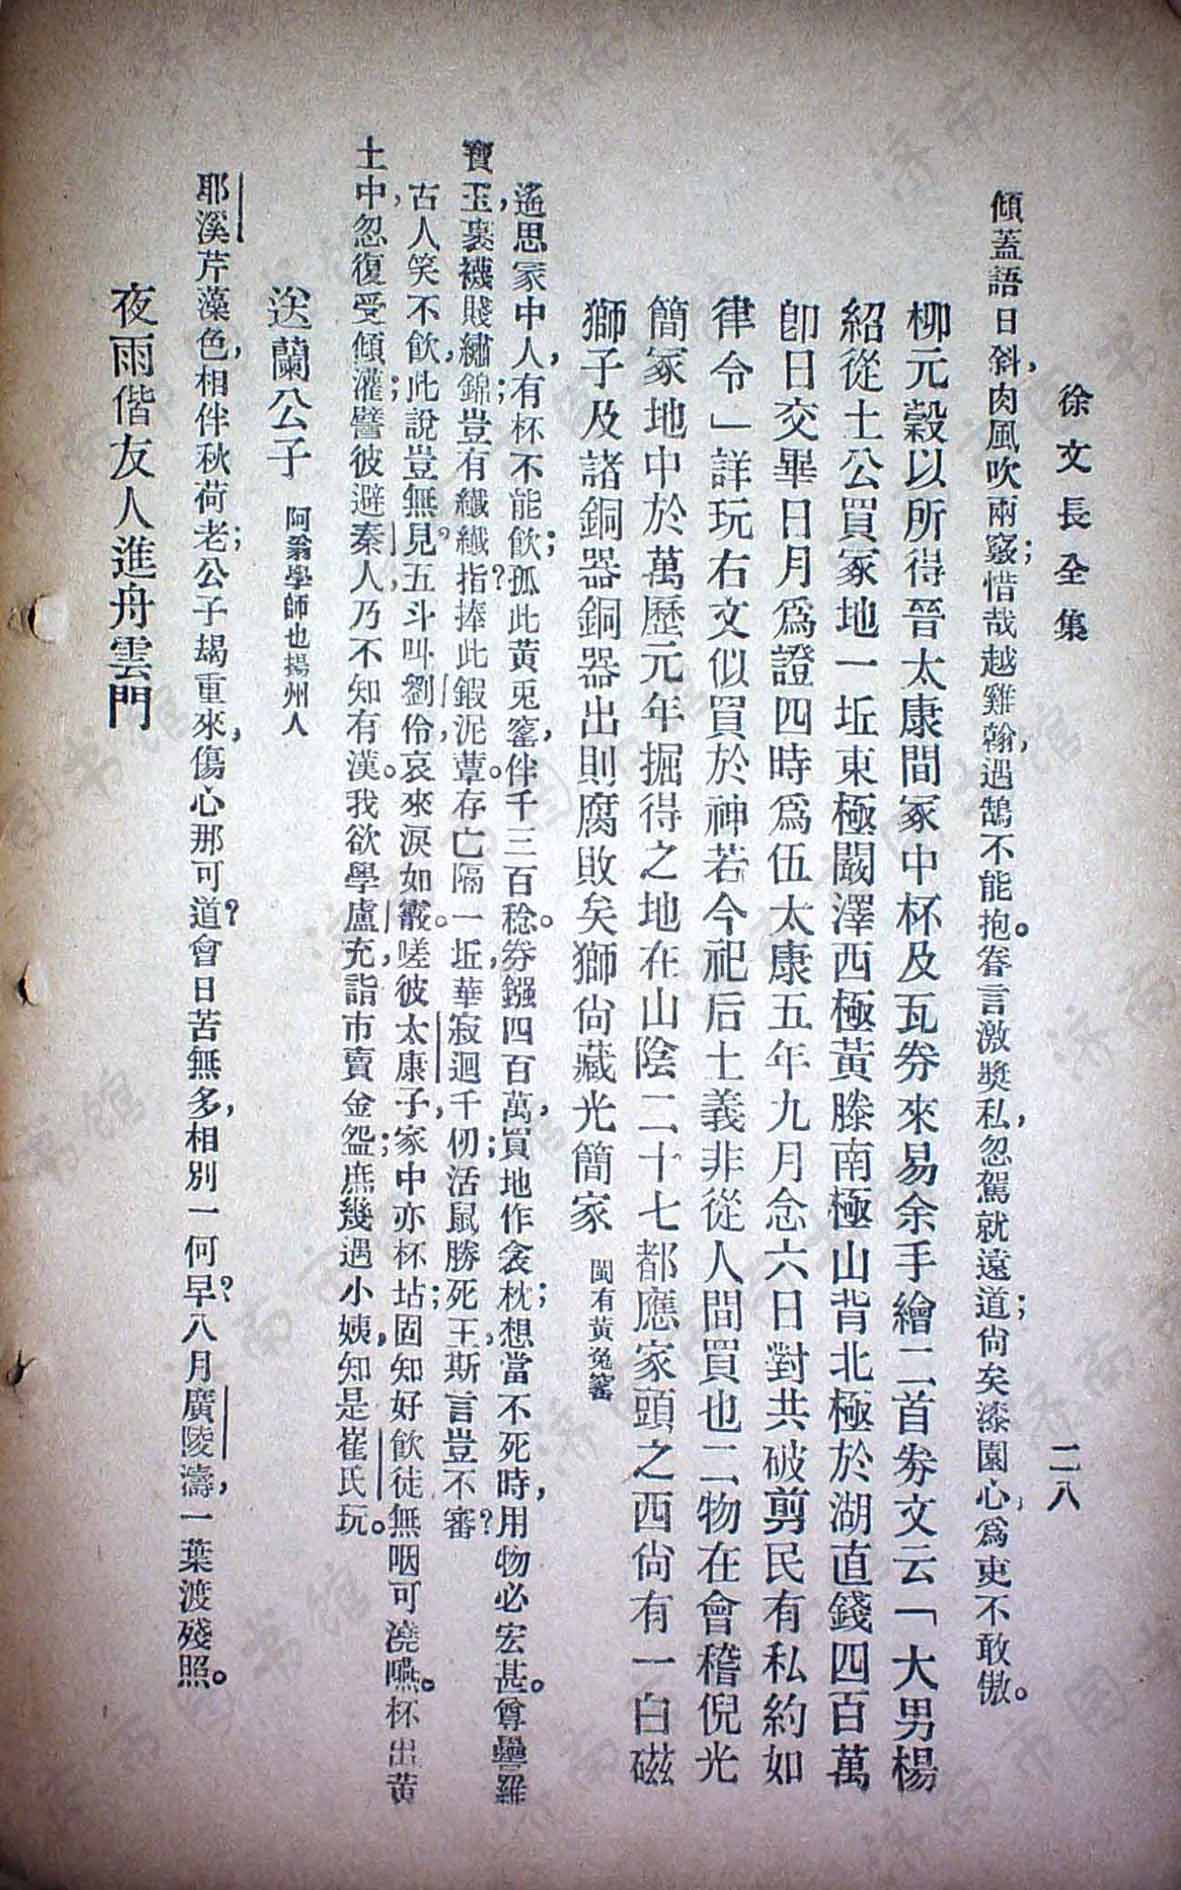 徐文長全集　二八
傾蓋語日斜，肉風吹兩竅；惜哉越雞翰，遇鵠不能抱。眷言激獎私，忽駕就遠道；尙矣漆園心，爲吏不敢傲。
柳元穀以所得晉太康間冢中杯及瓦券來易余手繪二首券文云「大男楊
紹從土公買冢地一坵東極闞澤西極黃滕南極山背北極於湖直錢四百萬
卽日交畢日月爲證四時爲伍太康五年九月念六日對共破剪民有私約如
律令」詳玩右文似買於神若今祀后土義非從人間買也二物在會稽倪光
簡冢地中於萬歷元年掘得之地在山陰二十七都應家頭之西尙有一白磁
獅子及諸銅器銅器出則腐敗矣獅尙藏光簡家　閩有黃兔窰
遙思冢中人，有杯不能飲；孤此黃兎窰，伴千三百稔。券鏹四百萬，買地作衾枕；想當不死時，用物必宏甚。尊罍羅
寶玉，裹襪賤繡錦；豈有纖纖指？捧此鍜泥蕈。存亡隔一坵，華寂迥千仞；活鼠勝死王，斯言豈不審？
古人笑不飲，此說豈無見？五斗叫劉伶，哀來淚如霰。嗟彼太康子，冢中亦杯坫；固知好飲徒，無咽可澆嚥。杯出黃
土中，忽復受傾灌；譬彼避秦人，乃不知有漢。我欲學盧充，詣市賣金盌；庶幾遇小姨，知是崔氏玩。
送蘭公子　阿翁學師也揚州人
耶溪芹藻色，相伴秋荷老；公子朅重來，傷心那可道？會日苦無多，相別一何早？八月廣陵濤，一葉渡殘照。
夜雨偕友人進舟雲門